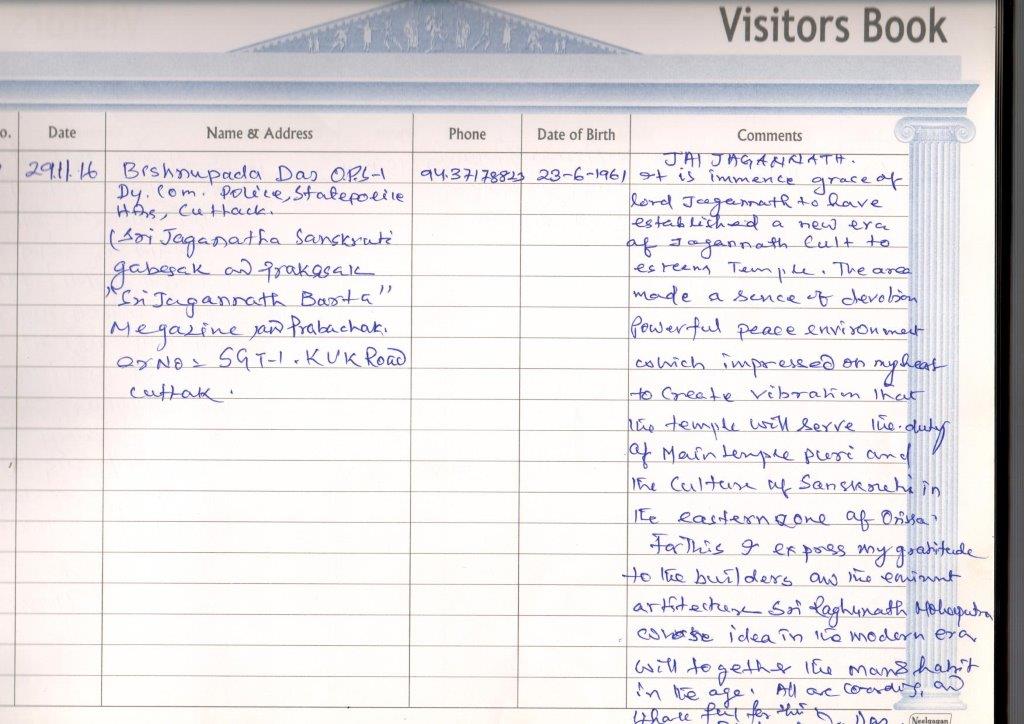 Visitors Book
o. Date Name & Address Phone Date of Birth Comments
29.11.16
Bishnupada Das OPS-1
Dy. Com. Police, State police
HQs, Cuttack.
(Sri Jaganatha Sanskruti
gabesak and prakasak
"Sri Jagannath Barta"
Megazine and Prabachak.
Qr No = SGT-1. KUK Road
Cuttak.
9437178823
23-6-1961
JAI JAGANNATH.
It is immence grace of
lord Jagannath to have
established a new era
of Jagannath Cult to
Temple. The area
made a sence of devotion
Powerful peace environment
which impressed on my heart
to create vibration that
the temple will serve the duty
of Main temple puri and
the Culture of Sanskruti in
the eastern zone of Orissa.
For this I express my gratitude
to the builders and the eminent
artitecture Sri Raghunath Mohapatra
idea in the modern era
will together the mans habit
in the age. All are and
for this
Neelgagan